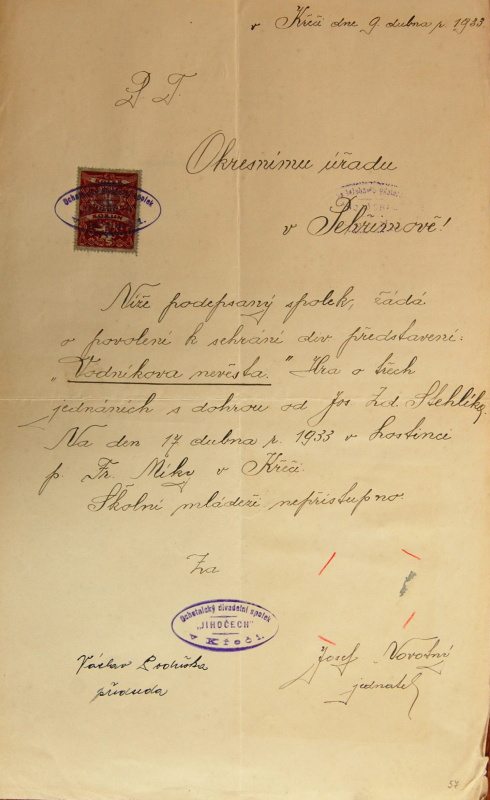 v Křči dne 9 dubna r. 1933.
P. T.
Okresnímu úřadu
v Pelhřimově!
Ochotnický divadelní spolek
5
Níže podepsaný spolek, žádá
o povolení k sehrání div. představení:
„Vodníkova nevěsta." Hra o třech
jednáních s dohrou od Jos. Zd. Stehlíka.
Na den 17 dubna r. 1933 v hostinci
p. Fr. Miky v Křči.
Školní mládeži nepřístupno.
Za
Ochotnický divadelní spolek
„JIHOČECH"
v Křeči.
Václav
předseda
Josef Novotný
jednatel
57